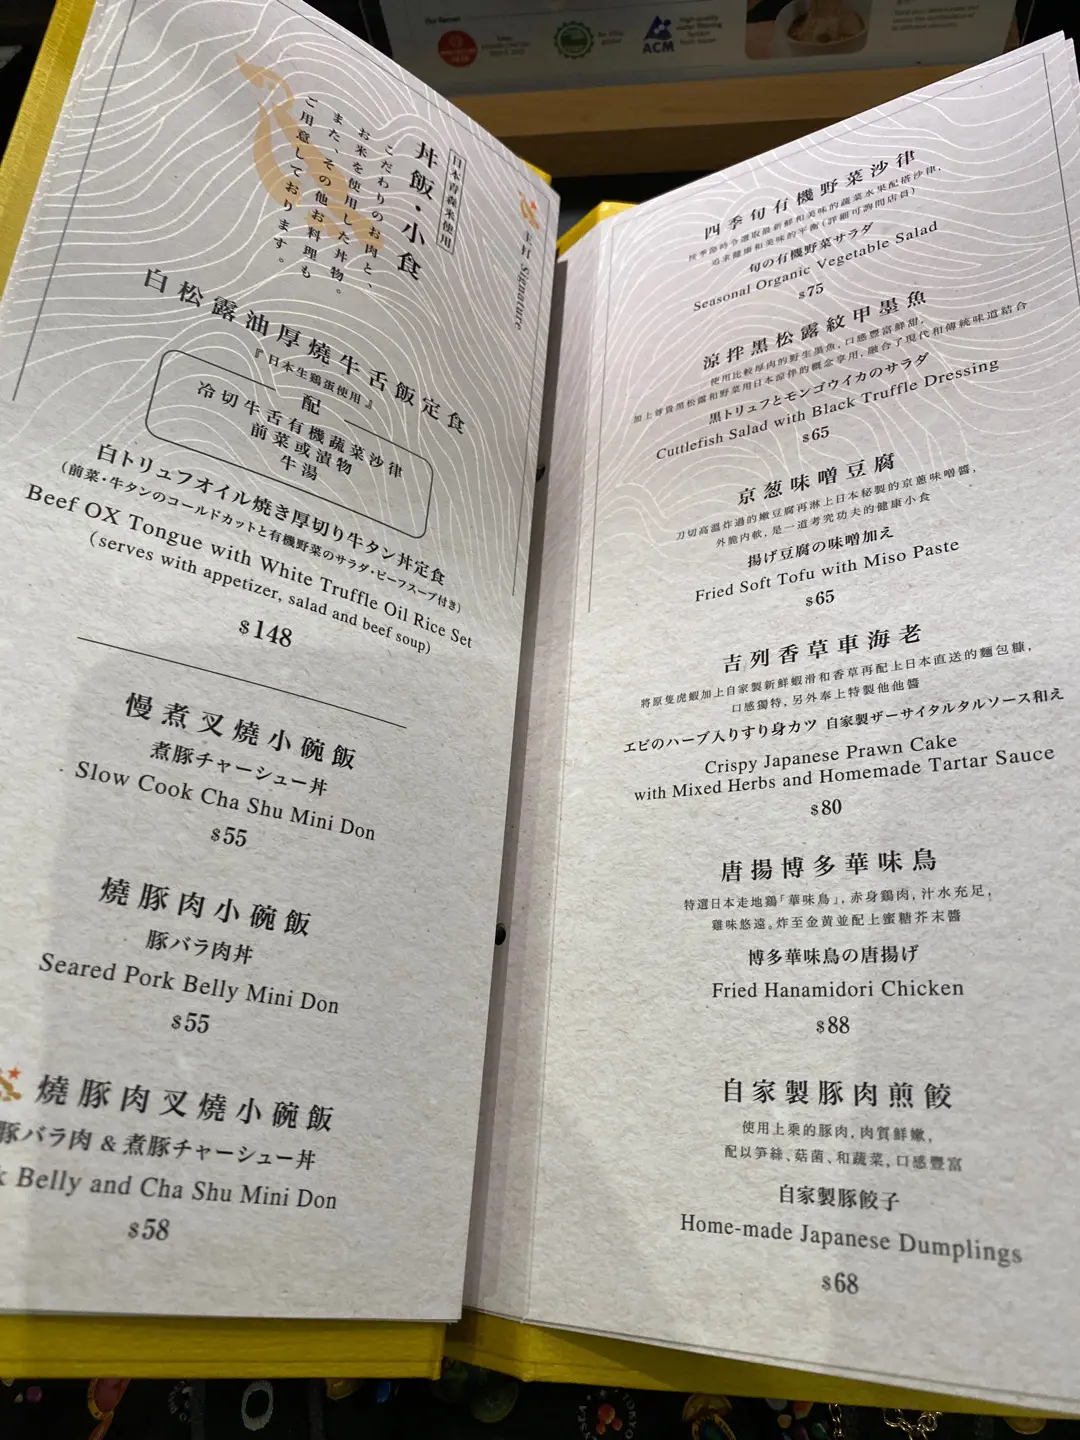 ACM
主打 Signature
日本青森米使用
丼飯・小食
こだわりのお肉と、
お米を使用した丼物。
また、その他お料理も
ご用意しております。
白松露油厚燒牛舌飯定食
『日本生鶏蛋使用』
配
冷切牛舌有機蔬菜沙律
前菜或漬物
牛湯
白トリュフオイル焼き厚切り牛タン丼定食
(前菜・牛タンのコールドカットと有機野菜のサラダ・ビーフスープ付き)
Beef OX Tongue with White Truffle Oil Rice Set
(serves with appetizer, salad and beef soup)
$148
慢煮叉燒小碗飯
煮豚チャーシュー丼
Slow Cook Cha Shu Mini Don
$55
燒豚肉小碗飯
豚バラ肉丼
Seared Pork Belly Mini Don
$55
燒豚肉叉燒小碗飯
豚バラ肉 & 煮豚チャーシュー丼
Belly and Cha Shu Mini Don
$58
四季旬有機野菜沙律
按季節時令選取最新鮮和美味的蔬菜水果配搭沙律,
追求健康和美味的平衡(詳細可詢問店員)
旬の有機野菜サラダ
Seasonal Organic Vegetable Salad
$75
涼拌黑松露紋甲墨魚
使用比較厚肉的野生墨魚,口感豐富鮮甜,
加上尊貴黑松露和野菜用日本涼伴的概念享用,融合了現代和傳統味道結合
黒トリュフとモンゴウイカのサラダ
Cuttlefish Salad with Black Truffle Dressing
$65
京葱味噌豆腐
刀切高溫炸過的嫩豆腐再淋上日本秘製的京蔥味噌醬,
外脆內軟,是一道考究功夫的健康小食
揚げ豆腐の味噌加え
Fried Soft Tofu with Miso Paste
$65
吉列香草車海老
將原隻虎蝦加上自家製新鮮蝦滑和香草再配上日本直送的麵包糠,
口感獨特,另外奉上特製他他醬
エビのハーブ入りすり身カツ 自家製ザーサイタルタルソース和え
Crispy Japanese Prawn Cake
with Mixed Herbs and Homemade Tartar Sauce
$80
唐揚博多華味鳥
特選日本走地鶏「華味鳥」,赤身鶏肉,汁水充足,
雞味悠遠。炸至金黄並配上蜜糖芥末醬
博多華味鳥の唐揚げ
Fried Hanamidori Chicken
$88
自家製豚肉煎餃
使用上乘的豚肉,肉質鮮嫩,
配以笋絲、菇菌、和蔬菜,口感豐富
自家製豚餃子
Home-made Japanese Dumplings
$68